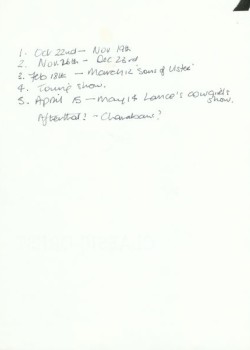 1. Oct 22nd – Nov 19th
2. Nov. 26th – Dec 23rd
3. Feb 18th – March 12 'Sons of Ulster'
4. show.
5. April 15 – May 14 Lance's cowgirls show.
Afterthat? –